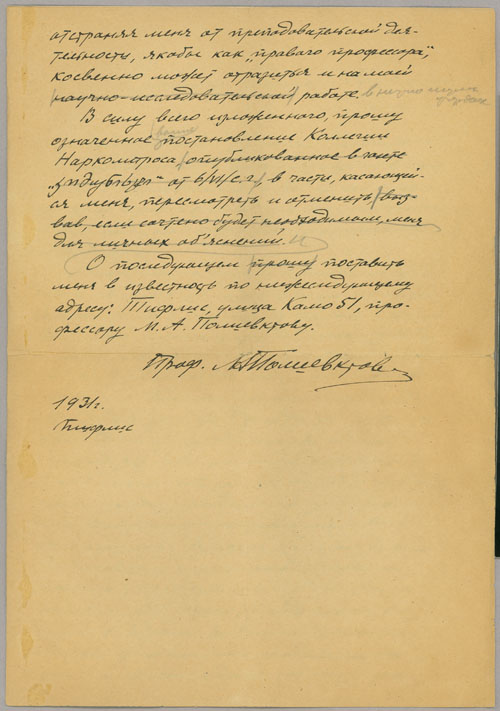 отстраняя меня от преподовательской дея-
тельности, якобы как „праваго профессора“,
косвенно может отразиться и на моей
научно-исследовательской работе в
В силу всего изложенного, прошу
означенное постановление Колегии
Наркомпроса, опубликованное в газете
от 6/VI/с.г., в части, касающей-
ся меня, пересмотреть и отменить, выз-
вав, если сочтено будет необходимым, меня
для личных об'яснений.
О последующем прошу поставить
меня в известность по нижеследующему
адресу: Тифлис, улица Камо 51, про-
фессору М. А. Полиевктову.
Проф. М. Полиевктов
1931 г.
Тифлис